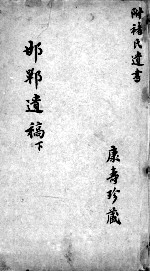 附褚氏遺書
邯鄲遺稿下
康壽珍藏